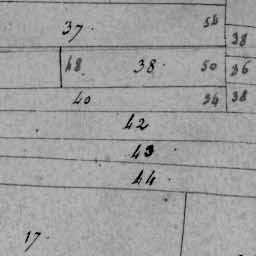 37. 54
38
48. 38. 50 36
40 34 38
42
43.
44.
17.